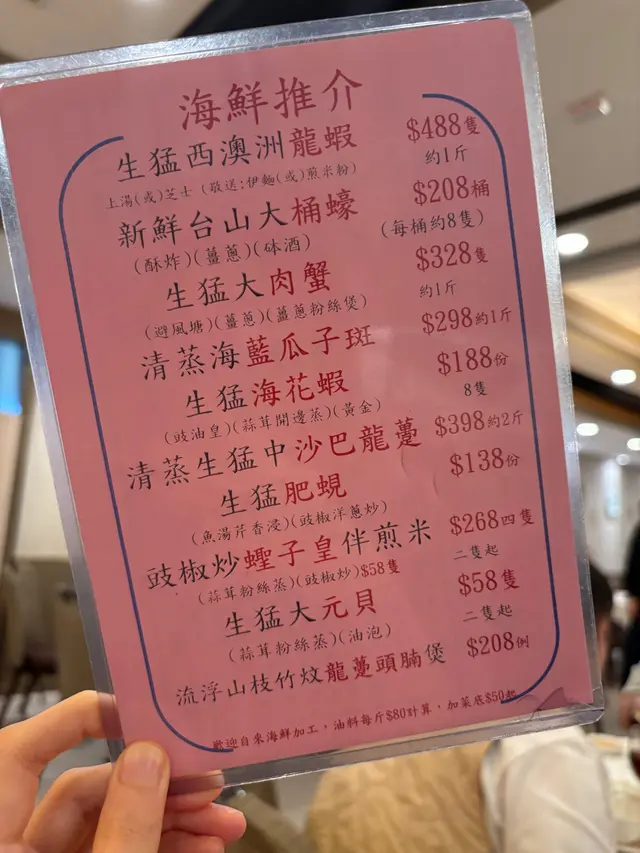 海鮮推介
生猛西澳洲龍蝦 $488隻
上湯(或)芝士 (敬送:伊麵(或)煎米粉) 約1斤
新鮮台山大桶蠔 $208桶
(酥炸)(薑蔥)(砵酒) (每桶約8隻)
生猛大肉蟹 $328隻
(避風塘)(薑蔥)(薑蔥粉絲煲) 約1斤
清蒸海藍瓜子斑 $298約1斤
生猛海花蝦 $188份
(豉油皇)(蒜茸開邊蒸)(黃金) 8隻
清蒸生猛中沙巴龍躉 $398約2斤
生猛肥蜆 $138份
(魚湯芹香浸)(豉椒洋蔥炒)
豉椒炒蟶子皇伴煎米 $268四隻
(蒜茸粉絲蒸)(豉椒炒)$58隻 二隻起
生猛大元貝 $58隻
(蒜茸粉絲蒸)(油泡) 二隻起
流浮山枝竹炆龍躉頭腩煲 $208例
歡迎自來海鮮加工，油料每斤$80計算，加菜底$50起